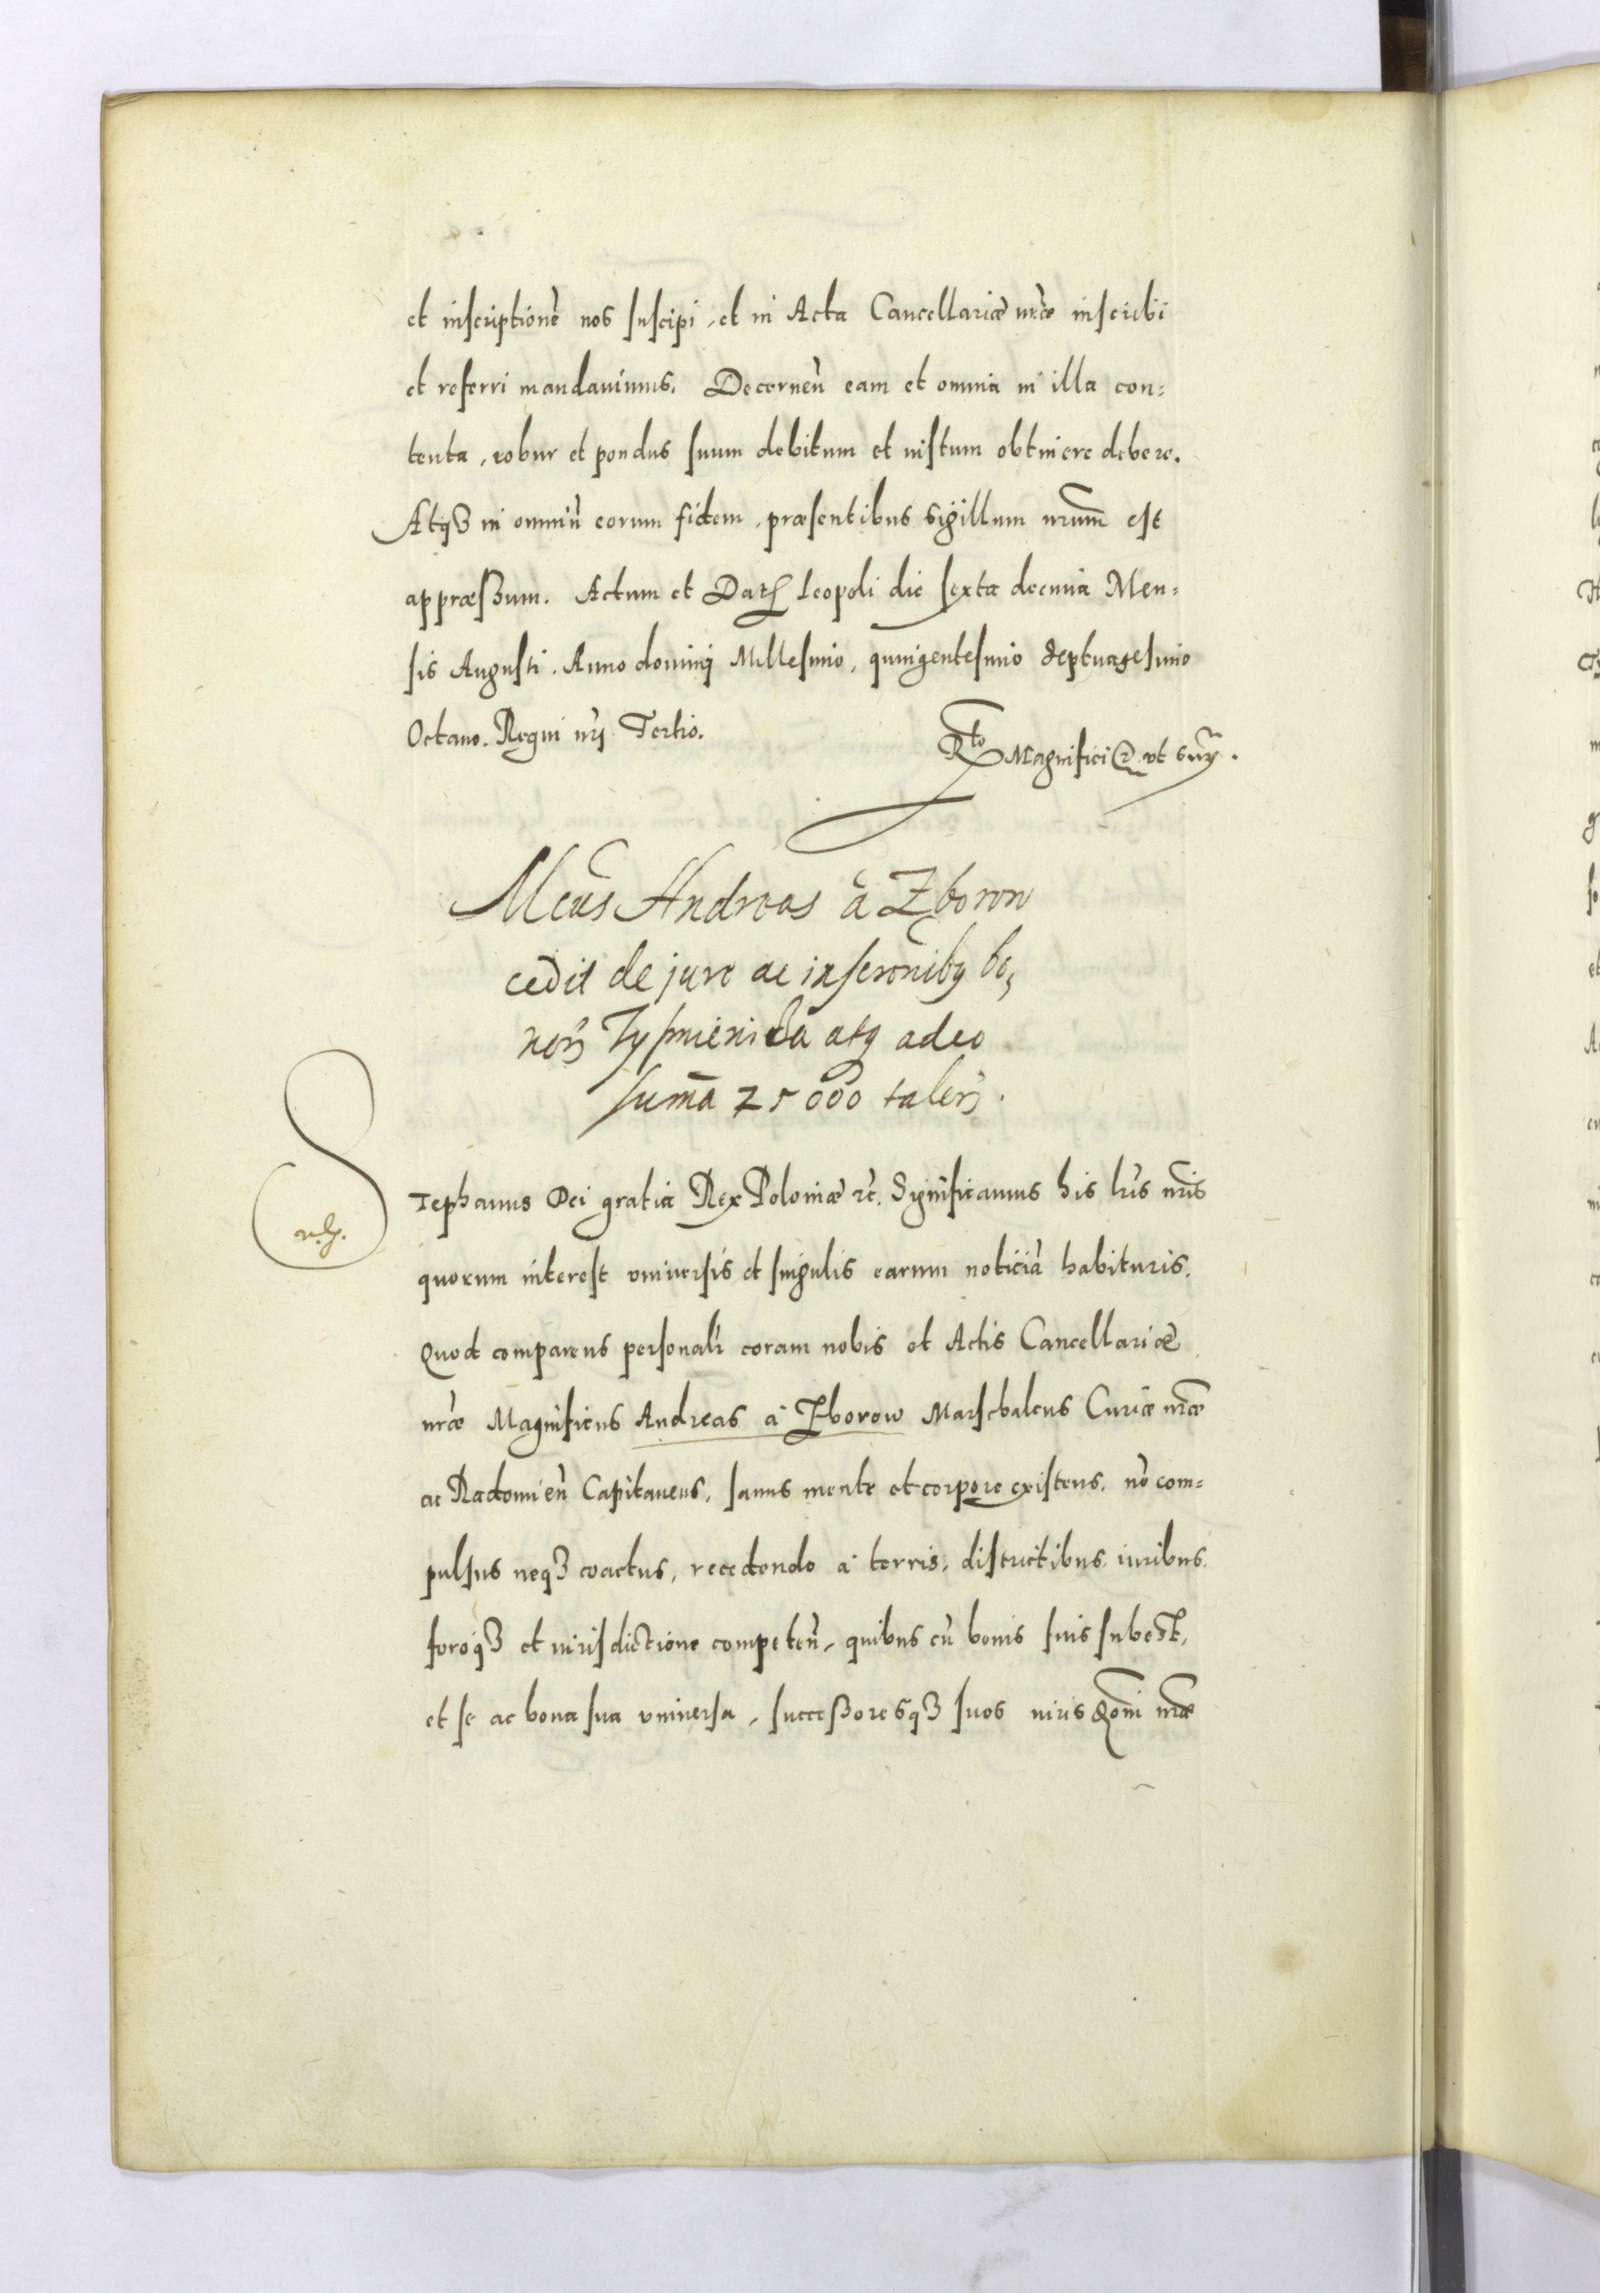 et inscriptionē nos suscipi, et in Acta Cancellariæ nr̄æ inscribi
et referri mandavimus. Decernen̄ eam et omnia in illa con=
tenta, robur et pondus suum debitum et iustum obtinere debere.
Atqꝫ in omniū eorum fidem, præsentibus sigillum nrūm est
appræssum. Actum et Dat̄ Leopoli die sexta decima Men=
sis Augusti. Anno domini Millesimo, quingentesimo septuagesimo
Octavo. Regni nr̄i Tertio.
R̄to Magnifici ut supr̄.
Mcus̄ Andreas à Zborow
cedit de jure ac inscronibꝫ bo,
nor̄ Tysmienicza atqꝫ adeo
sum̄a 25000 taler̄.
Stephanus Dei gratia Rex Poloniæ ꝛc̄. Significamus his lr̄is nr̄is
r.g.
quorum interest universis et singulis earum noticiā habituris.
Quod comparens personalr̄ coram nobis et Actis Cancellariæ
nr̄æ Magnificus Andreas à Zborow Marschalcus Curiæ nr̄æ
ac Radomien̄ Capitaneus, sanus mente et corpore existens, nō com=
pulsus neqꝫ coactus, recedendo à terris, districtibus, iuribus,
foroqꝫ et iurisdictione competen̄, quibus cū bonis suis subest,
et se ac bona sua universa, successoresqꝫ suos iurisd̄oni nr̄æ